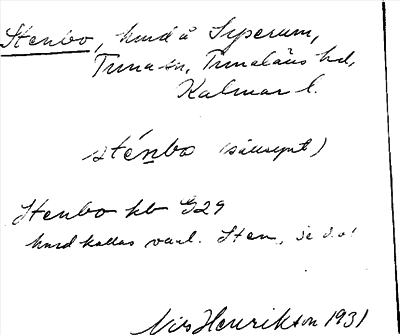 Stenbo, hmd å Syserum,
Tuna sn, Tunaläns hd,
Kalmar l.
sténbo (sällsynt)
Stenbo kb G29
hmd kallas vanl. Sten, se d.o!
Nils Henrikson 1931